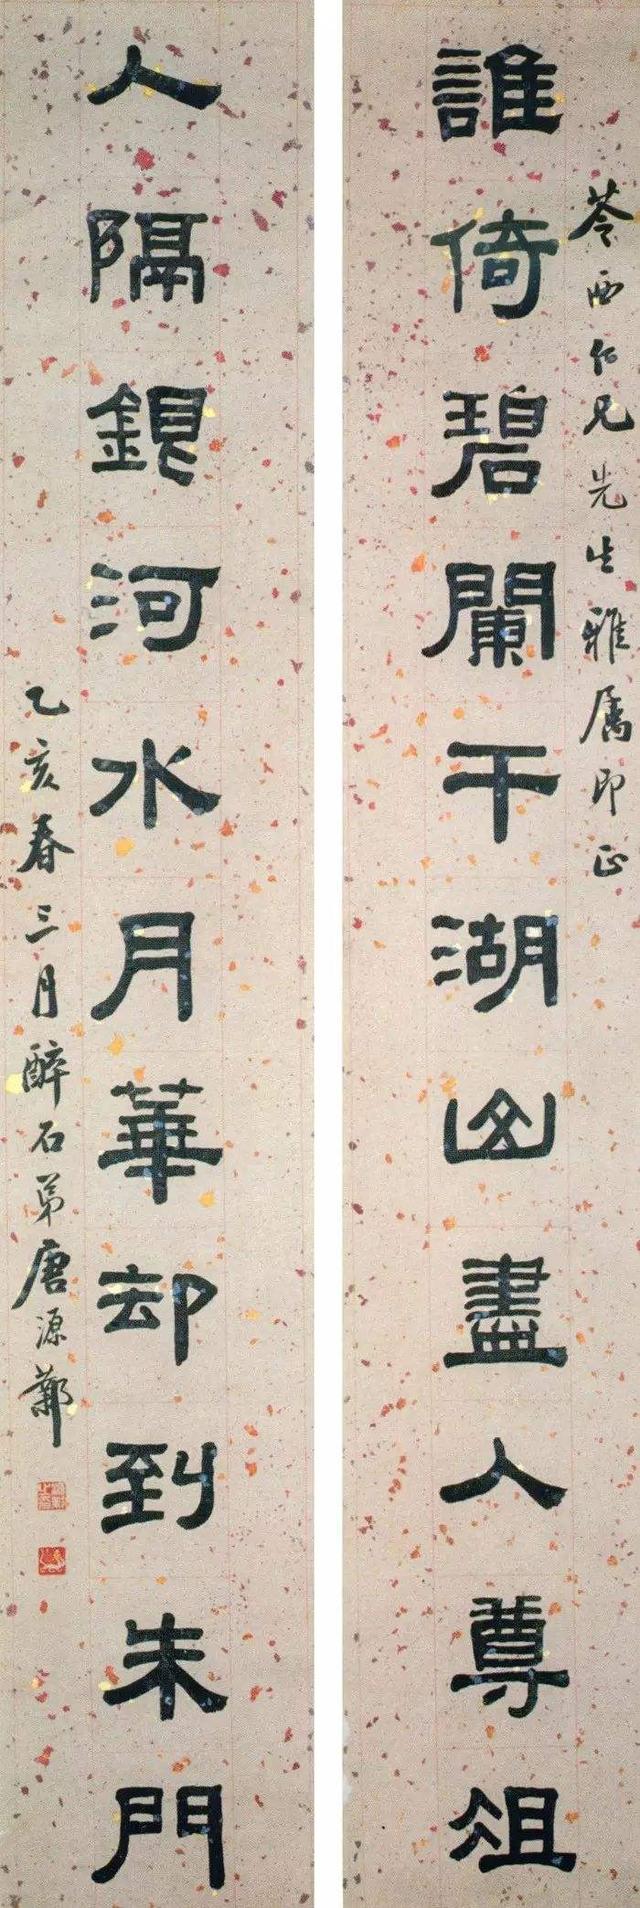 苓西仁兄先生雅属即正
誰倚碧闌干湖山盡人尊俎
人隔銀河水月華却到朱門
乙亥春三月醉石弟唐源鄴